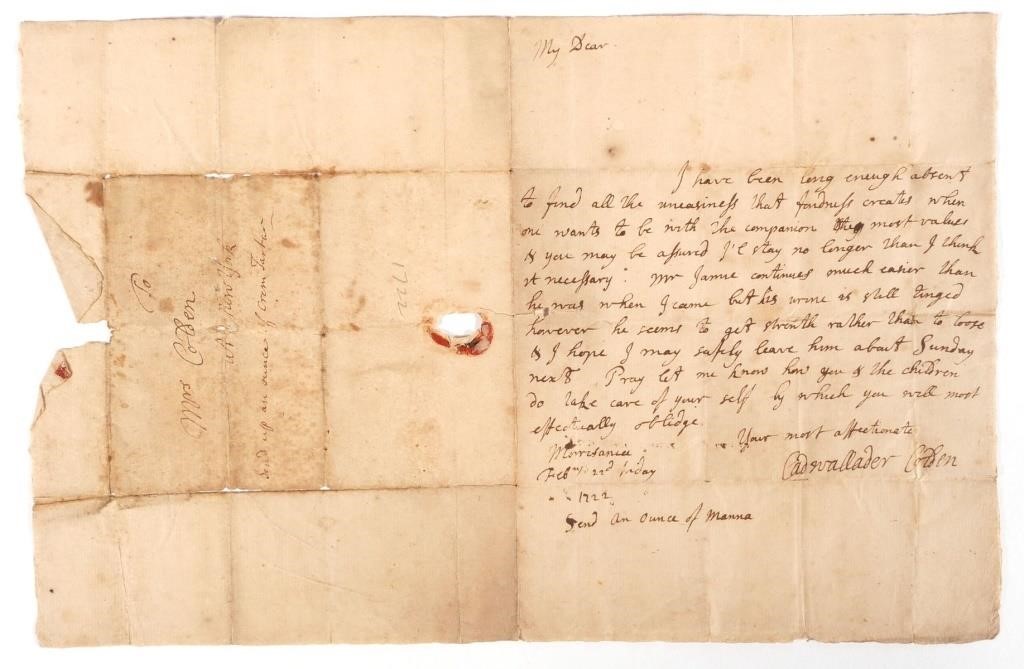 My Dear
I have been long enough absent
to find all the uneasiness that fondness creates when
one wants to be with the companion they most values
& you may be assured I'l stay no longer than I think
it necessary. Mr Jamie continues much easier than
he was when I came but his urine is still tinged
however he seems to get strenth rather than to loose
& I hope I may safely leave him about Sunday
next Pray let me know how you & the children
do take care of your self by which you will most
effectually oblidge
Your most affectionate
Cadwallader Colden
Morrisania
Febry 22d friday
1722
Send an ounce of Manna
To
Mrs Colden
at New York
Send up an ounce of
1722